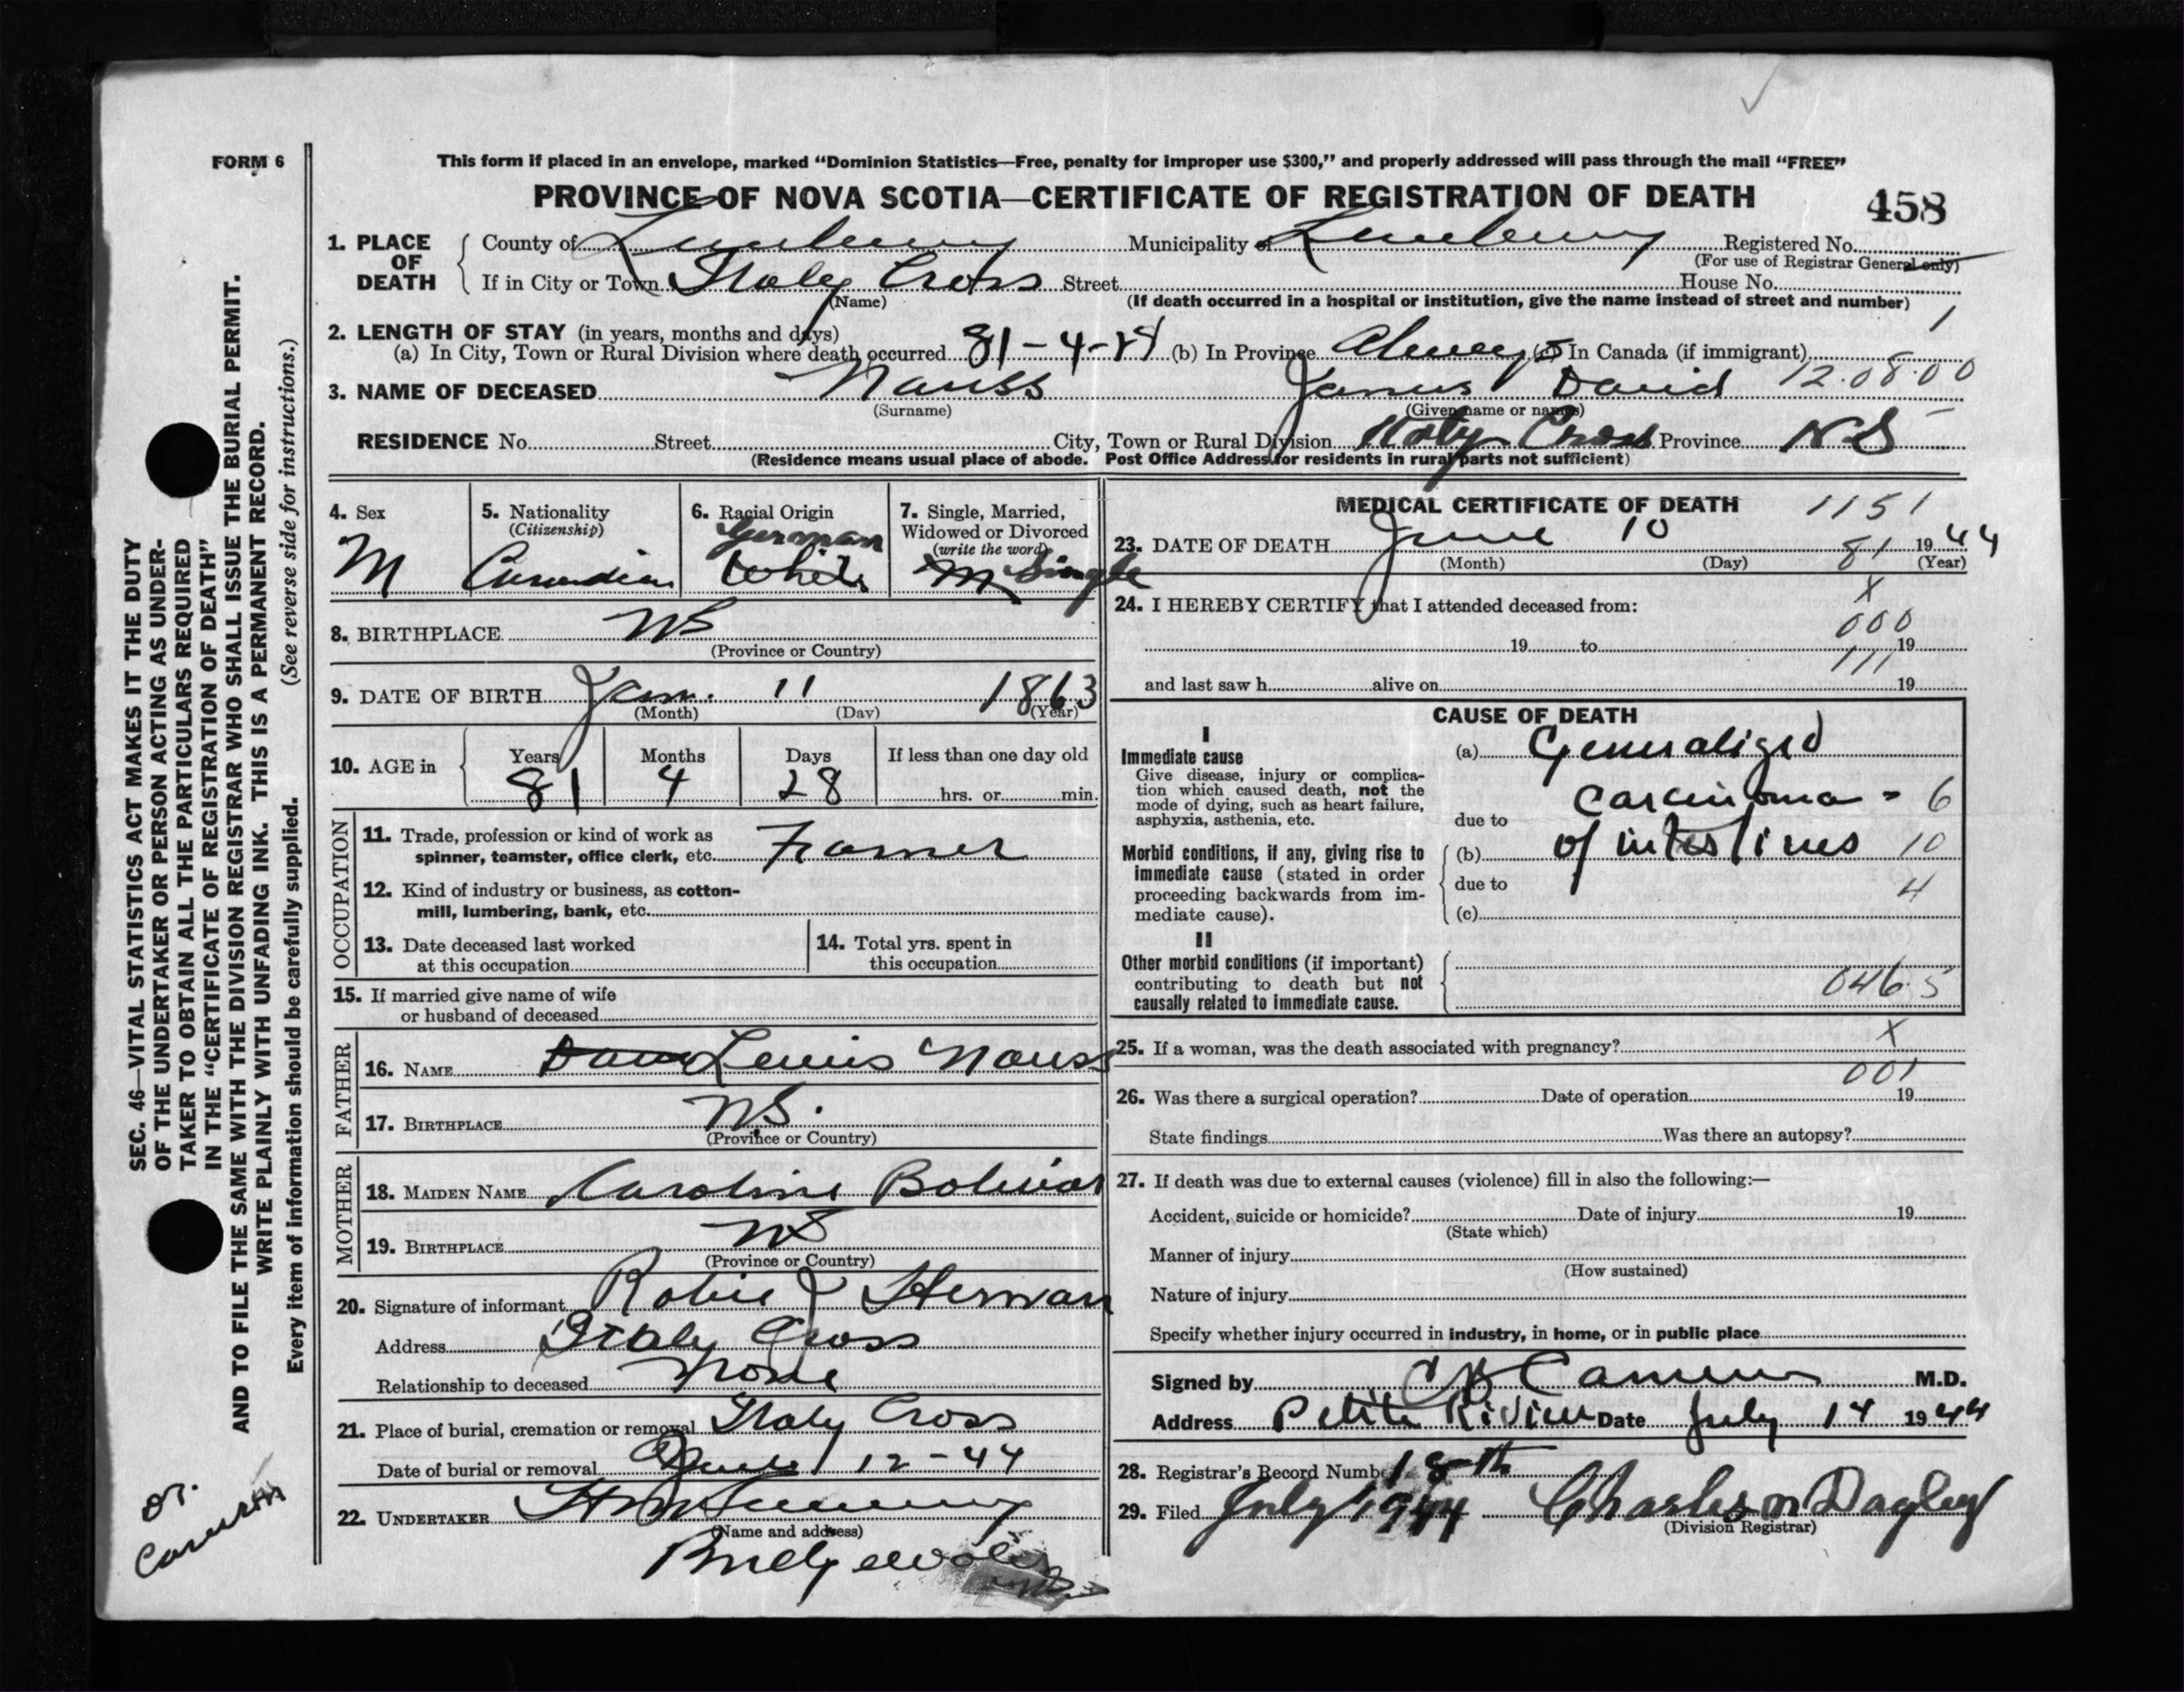 FORM 6
This form if placed in an envelope, marked "Dominion Statistics—Free, penalty for improper use $300," and properly addressed will pass through the mail "FREE"
PROVINCE OF NOVA SCOTIA—CERTIFICATE OF REGISTRATION OF DEATH
458
SEC. 46—VITAL STATISTICS ACT MAKES IT THE DUTY
OF THE UNDERTAKER OR PERSON ACTING AS UNDER-
TAKER TO OBTAIN ALL THE PARTICULARS REQUIRED
IN THE "CERTIFICATE OF REGISTRATION OF DEATH"
AND TO FILE THE SAME WITH THE DIVISION REGISTRAR WHO SHALL ISSUE THE BURIAL PERMIT.
WRITE PLAINLY WITH UNFADING INK. THIS IS A PERMANENT RECORD.
Every item of information should be carefully supplied. (See reverse side for instructions.)
1. PLACE OF DEATH
County of Lunenburg Municipality of Lunenburg Registered No.
(For use of Registrar General only)
If in City or Town Italy Cross Street House No.
(Name) (If death occurred in a hospital or institution, give the name instead of street and number)
2. LENGTH OF STAY (in years, months and days) 1
(a) In City, Town or Rural Division where death occurred 81-4-28 (b) In Province Always (c) In Canada (if immigrant)
3. NAME OF DECEASED Nauss James David 12.08.00
(Surname) (Given name or names)
RESIDENCE No. Street City, Town or Rural Division Italy Cross Province N S
(Residence means usual place of abode. Post Office Address for residents in rural parts not sufficient)
4. Sex
M
5. Nationality
(Citizenship)
Canadian
6. Racial Origin
German
White
7. Single, Married,
Widowed or Divorced
(write the word)
M Single
8. BIRTHPLACE NS
(Province or Country)
9. DATE OF BIRTH Jan. 11 1863
(Month) (Day) (Year)
10. AGE in
Years Months Days If less than one day old
81 4 28 hrs. or min.
OCCUPATION
11. Trade, profession or kind of work as
spinner, teamster, office clerk, etc. Farmer
12. Kind of industry or business, as cotton-
mill, lumbering, bank, etc.
13. Date deceased last worked
at this occupation
14. Total yrs. spent in
this occupation
15. If married give name of wife
or husband of deceased
FATHER
16. NAME Lewis Nauss
17. BIRTHPLACE NS.
(Province or Country)
MOTHER
18. MAIDEN NAME Caroline Bolivar
19. BIRTHPLACE NS
(Province or Country)
20. Signature of informant Robie J Hernan
Address Italy Cross
Relationship to deceased None
21. Place of burial, cremation or removal Italy Cross
Date of burial or removal June 12-44
22. UNDERTAKER
(Name and address)
Bridgewater
Dr.
Cameron
MEDICAL CERTIFICATE OF DEATH 1151
23. DATE OF DEATH June 10 81 1944
(Month) (Day) (Year)
24. I HEREBY CERTIFY that I attended deceased from: X
000
19 to 19
111
and last saw h alive on 19
CAUSE OF DEATH
I
Immediate cause
Give disease, injury or complica-
tion which caused death, not the
mode of dying, such as heart failure,
asphyxia, asthenia, etc.
(a) Generalized
carcinoma - 6
due to
Morbid conditions, if any, giving rise to
immediate cause (stated in order
proceeding backwards from im-
mediate cause).
(b) of intestines 10
due to 4
(c)
II
Other morbid conditions (if important)
contributing to death but not
causally related to immediate cause.
046.5
25. If a woman, was the death associated with pregnancy? X
001
26. Was there a surgical operation? Date of operation 19
State findings Was there an autopsy?
27. If death was due to external causes (violence) fill in also the following:—
Accident, suicide or homicide? Date of injury 19
(State which)
Manner of injury
(How sustained)
Nature of injury
Specify whether injury occurred in industry, in home, or in public place
Signed by C B Cameron M.D.
Address Petite Riviere Date July 14 1944
28. Registrar's Record Number 18th
29. Filed July 1944 Charles M Dagley
(Division Registrar)